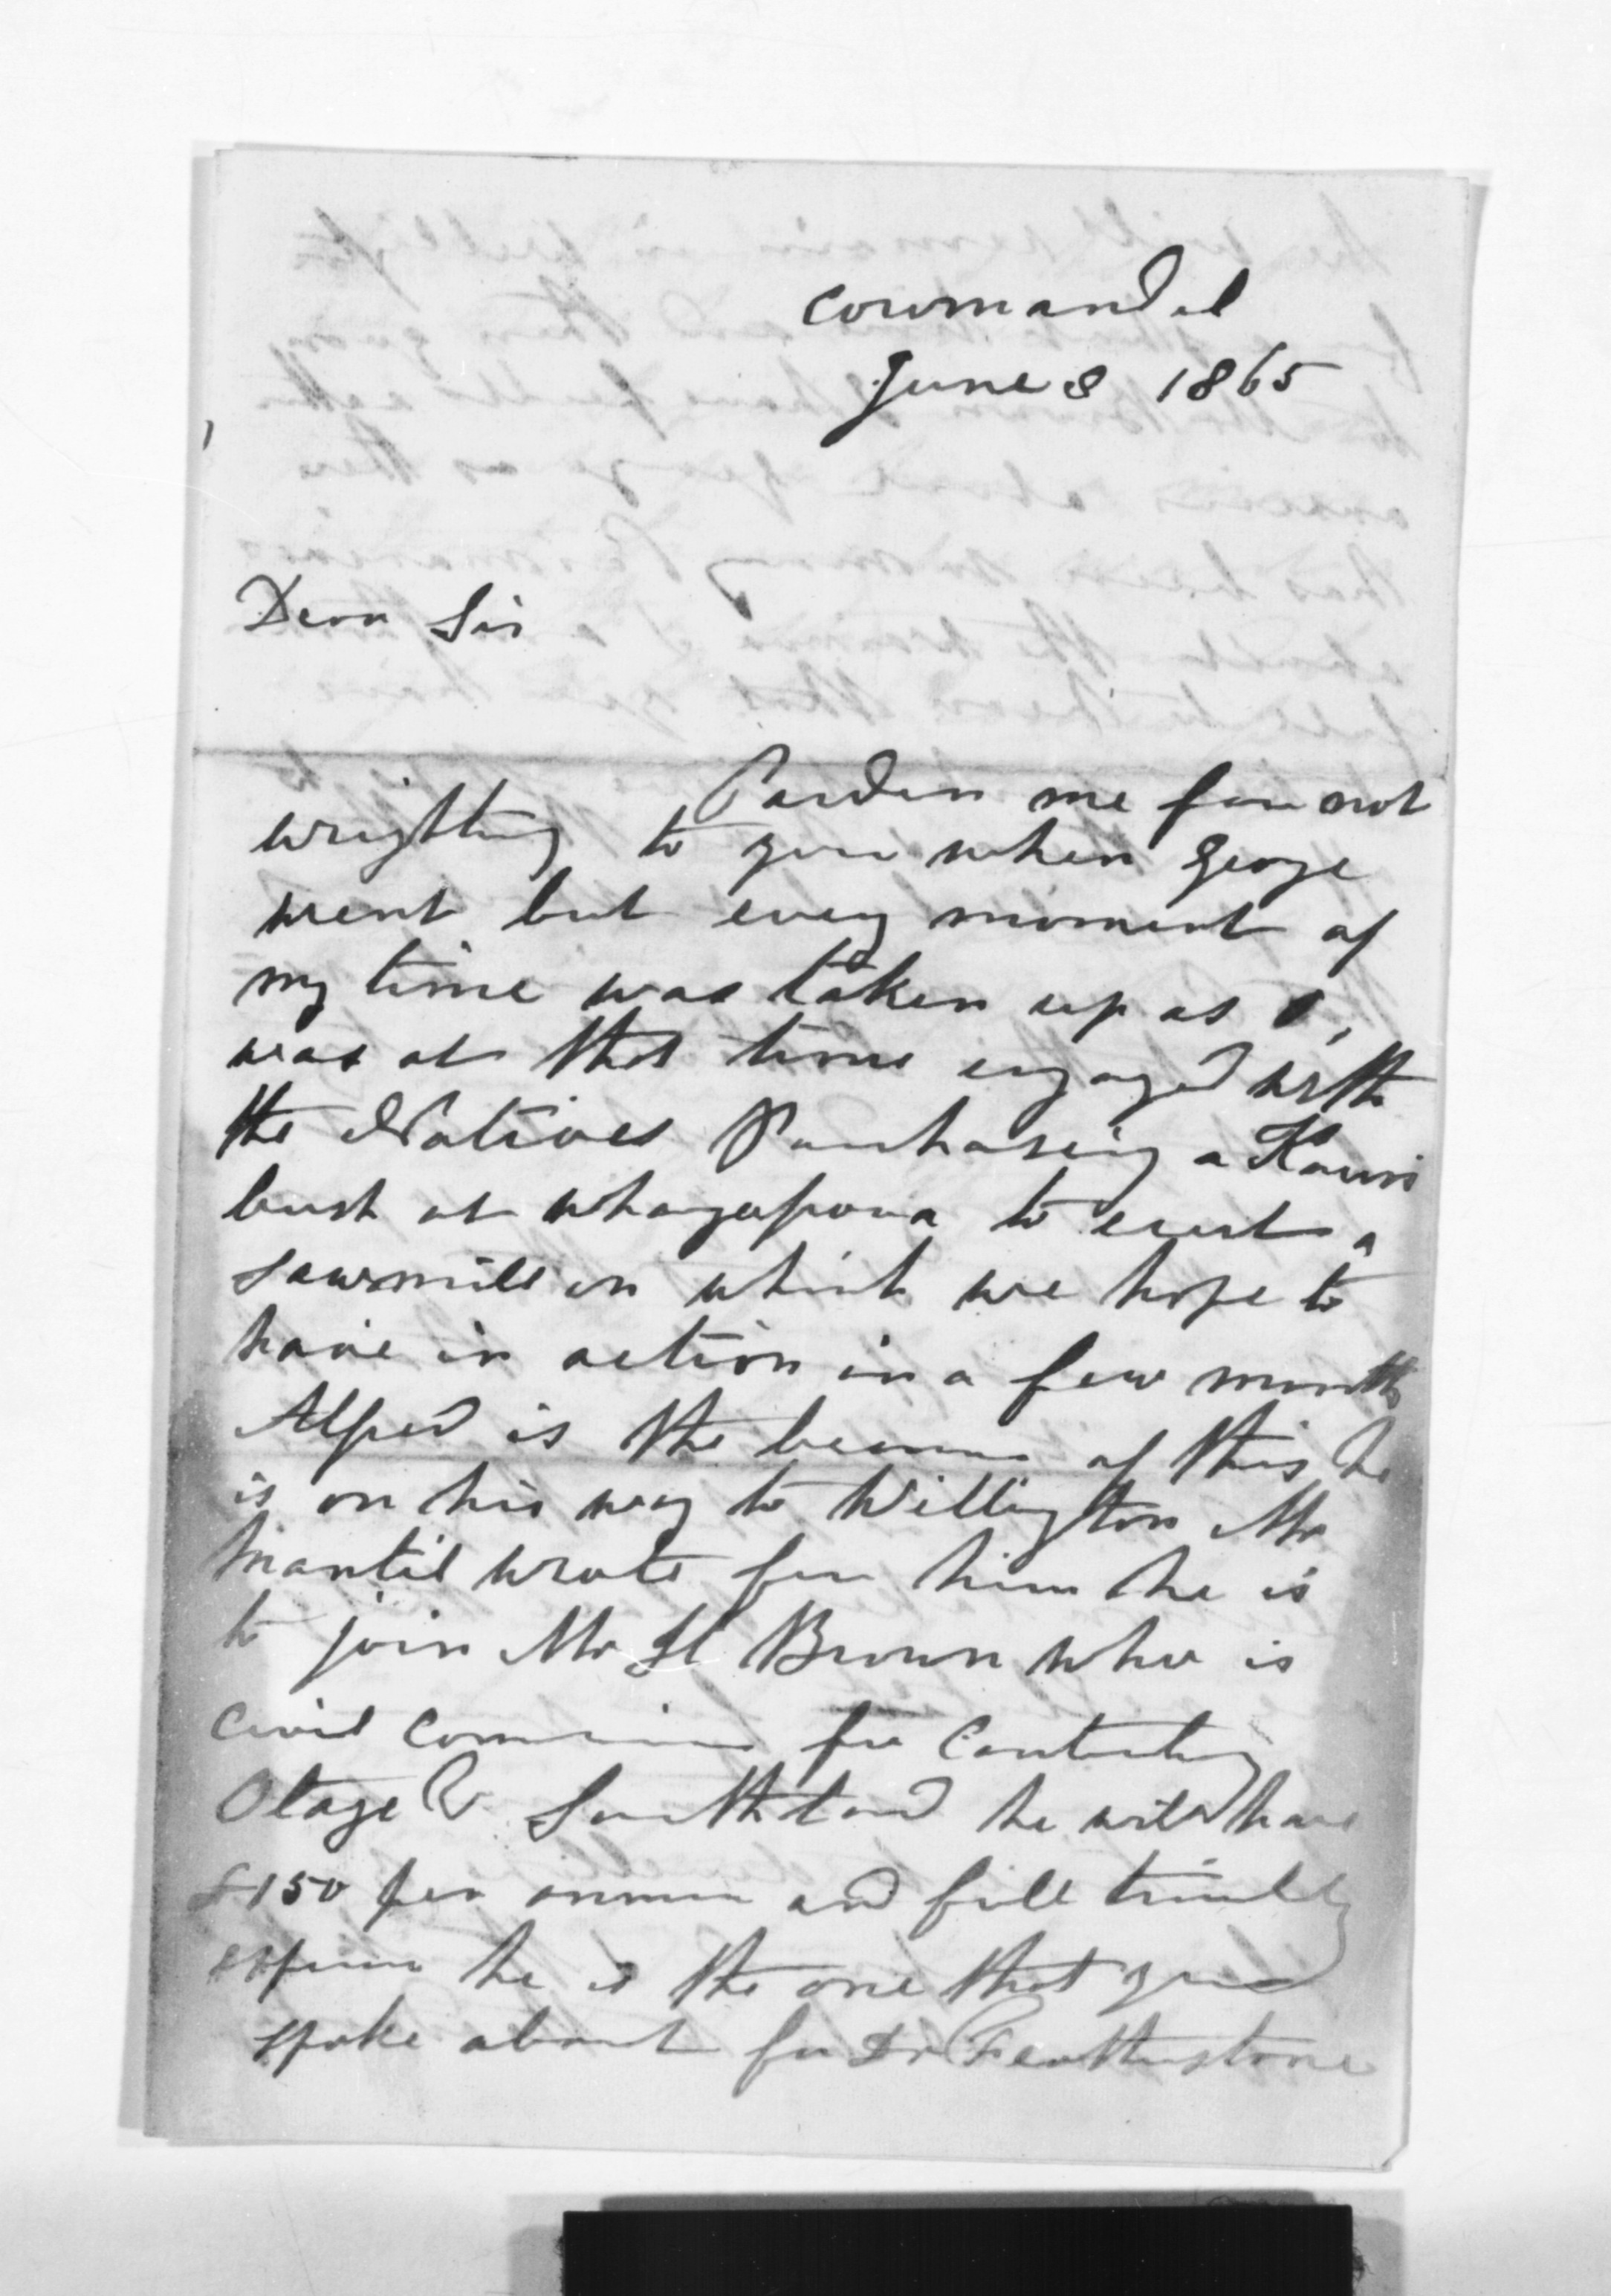 Cowmandel
June 8 1865
Dear Sir
Pardon me for not
wrighting to you when George
went but every moment of
my time was taken up as I,
was at that time engaged with
the Natives Purchasing a Kauri
bush at whangapoua to erect a
sawmill on which we hope to
have in action in a few months
Alfred is the bearer of this he
is on his way to Wellington Mr
Mantil wrote for him he is
to join Mr H Brown who is
Civil for
Otago & Southland he will have
£150 per annum and full
he is the one that you
spoke about for Dr Feartherstone